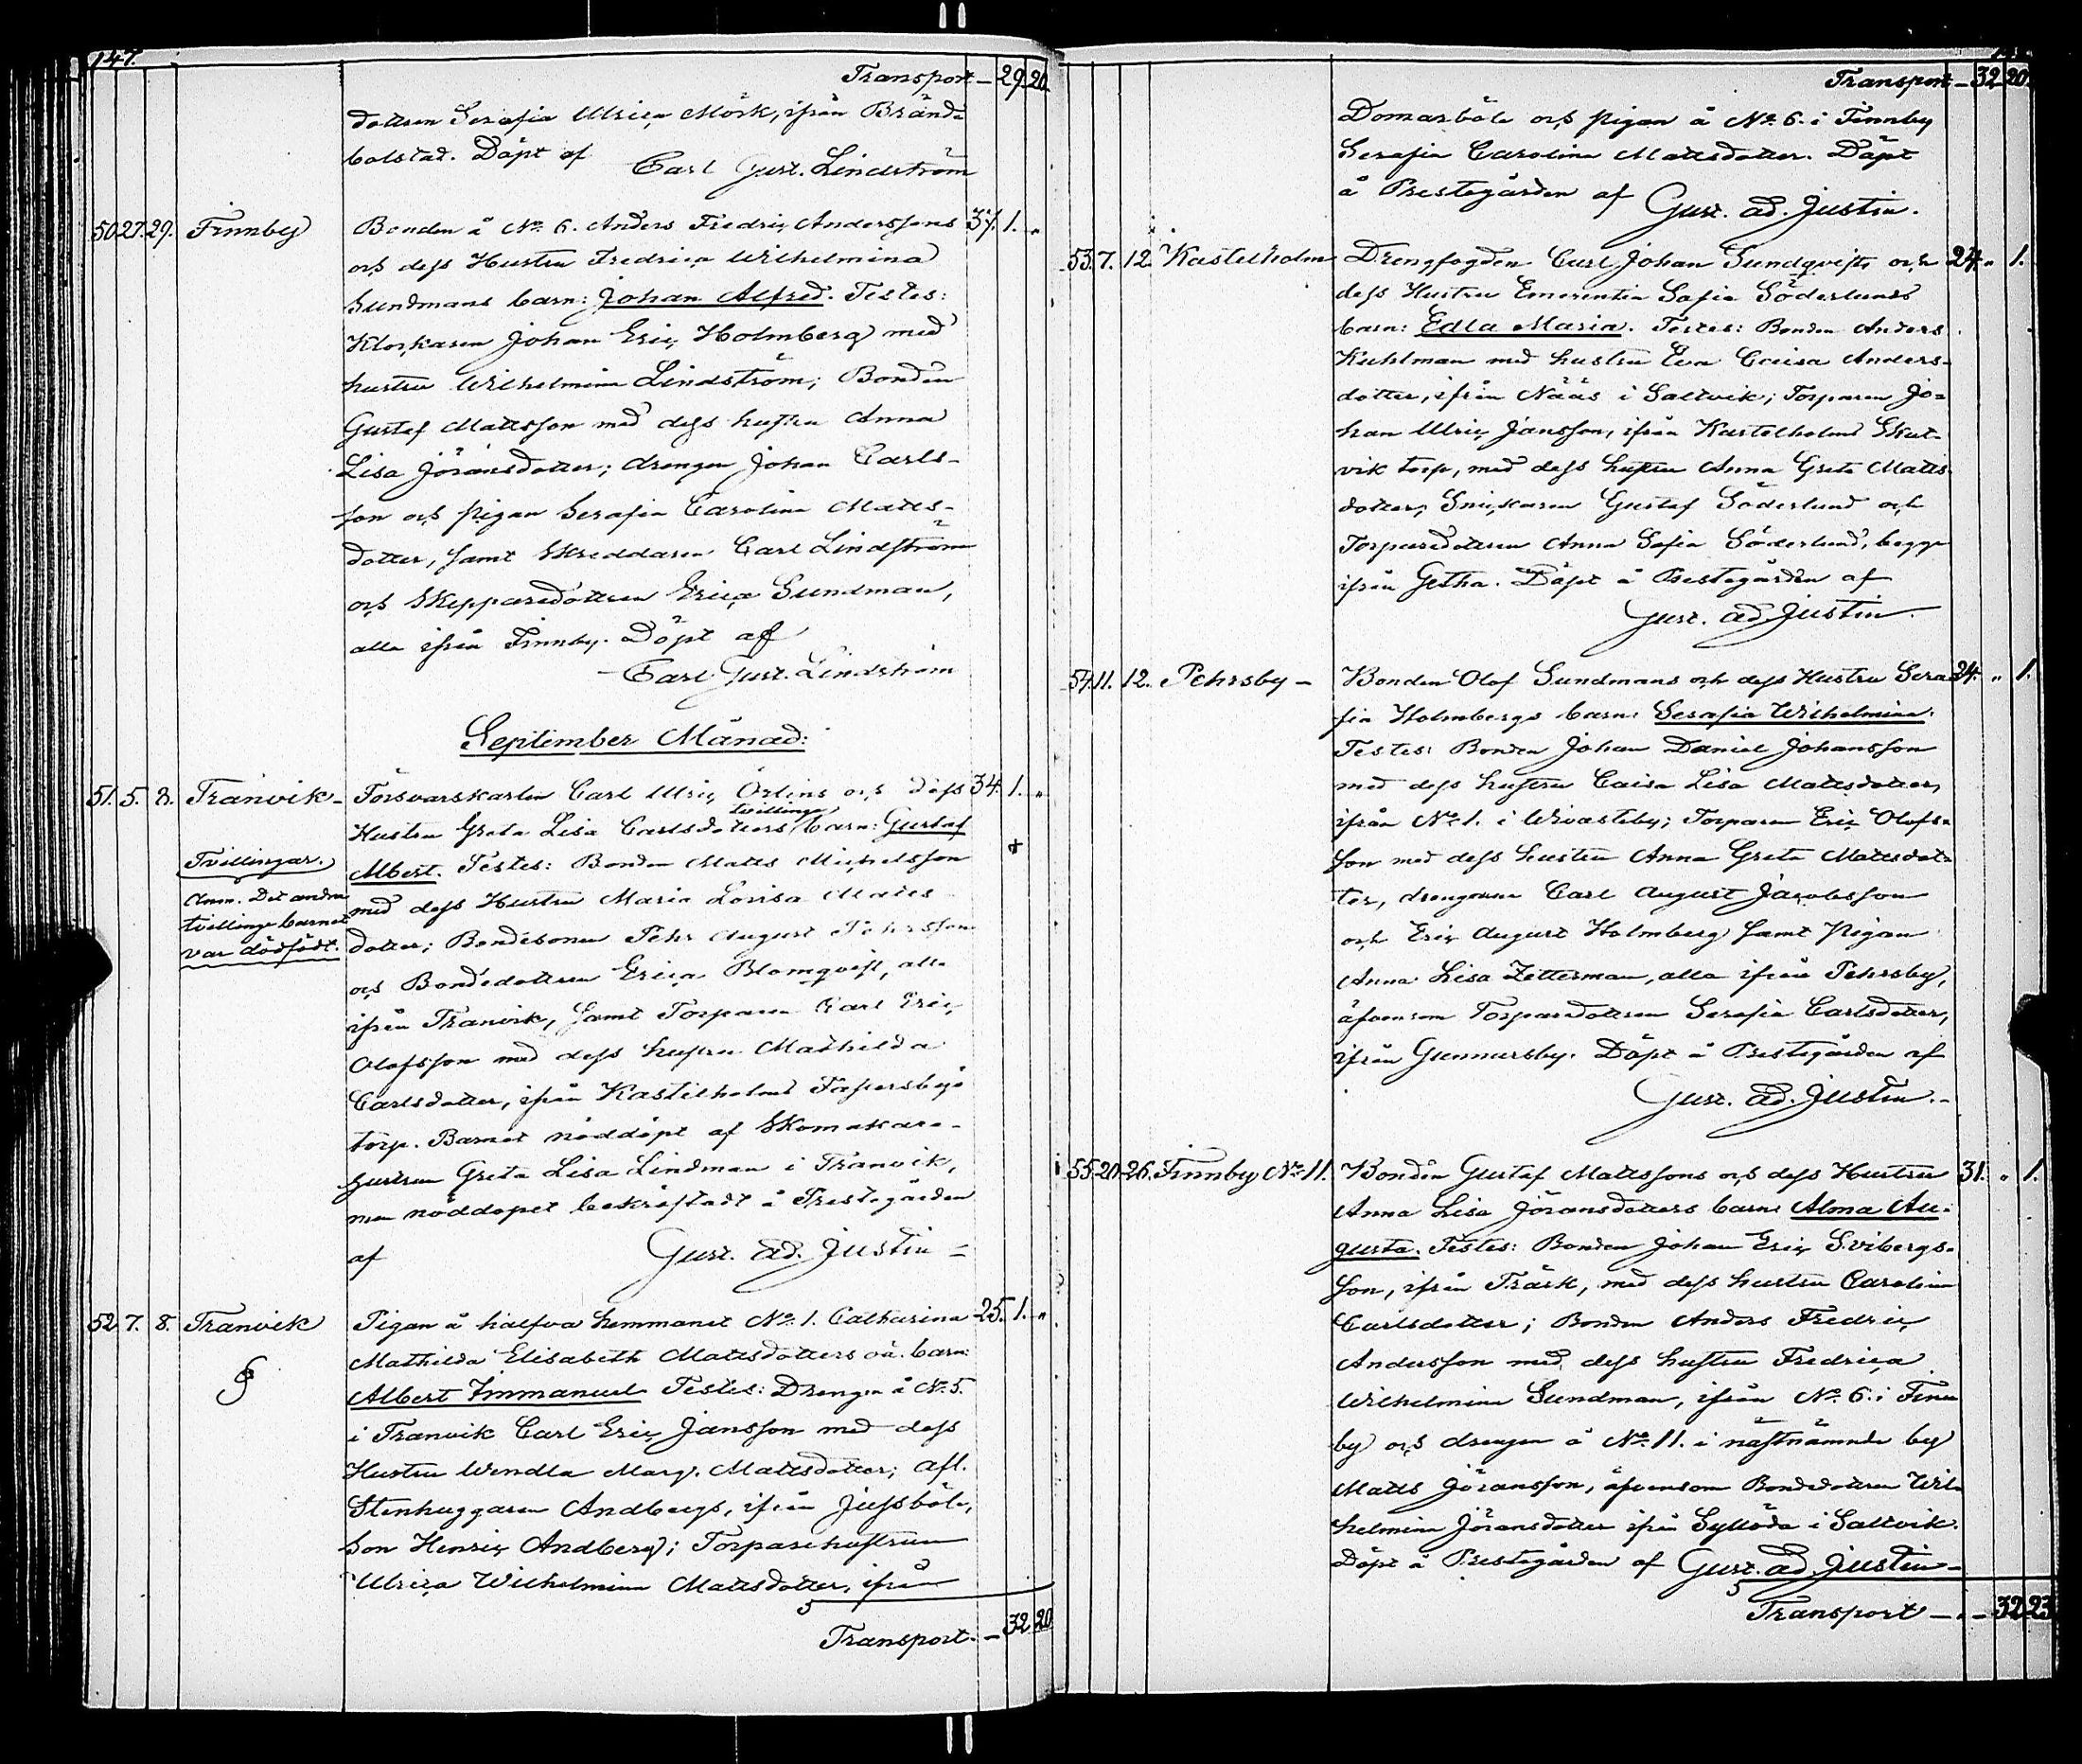 147.
Transport — 29. 20.
dottren Serafia Ulrica Mörk, ifrån Brände
bolstad. Döpt af
Carl Gust. Lindström
50. 27. 29. Finnby Bonden å No 6. Anders Fredric Anderssons 37. 1. "
och dess Hustru Fredrica Wilhelmina
Sundmans barn: Johan Alfred. Testes:
Klockaren Johan Eric Holmberg med
hustru Wilhelmina Lindström; Bonden
Gustaf Mattsson med dess hustru Anna
Lisa Jöransdotter; drengen Johan Carls-
son och pigan Serafia Carolina Matts-
dotter, samt Skreddaren Carl Lindström
och Skepparedottren Erica Sundman,
alla ifrån Finnby. Döpt af
Carl Gust. Lindström
September Månad:
51. 5. 8. Tranvik - Försvarskarlen Carl Ulric Örlins och dess 34. 1. "
tvillinge
Hustru Greta Lisa Carlsdotters barn: Gustaf
Tvillingar. Albert. Testes: Bonden Matts Michelsson +
Anm. Det andra med dess Hustru Maria Lovisa Matts
tvillinge barnet dotter; Bondesonen Pehr August Pehrsson
var dödfödt. och Bondedottren Erica Blomqvist, alla
ifrån Tranvik, samt Torparen Carl Eric
Olofsson med dess hustru Mathilda
Carlsdotter, ifrån Kastelholms
torp. Barnet nöddöpt af Skomakare-
hustrun Greta Lisa Lindman i Tranvik,
men nöddopet bekräftadt å Prestegården
af Gust. Ad. Justin -
52. 7. 8. Tranvik Pigan å halfva hemmanet No 1. Catharina 25. 1. "
Mathilda Elisabeth Mattsdotters oä. barn:
Albert Immanuel Testes: Drengen å No 5.
i Tranvik Carl Eric Jansson med dess
Hustru Wendla Marg. Mattsdotter; afl.
Stenhuggaren Andbergs, ifrån Jussböle,
Son Henric Andberg; Torparehustrun
Ulrica Wilhelmina Mattsdotter, ifrån
Transport. — 32 20
Transport — 32 20.
Domarböle och pigan å No 6. i Finnby
Serafia Carolina Mattsdotter. Döpt
å Prestegården af Gust. Ad. Justin.
53. 7. 12. Kastelholm Drengfogden Carl Johan Sundqvists och 24. " 1.
dess Hustru Emerentia Sofia Söderlunds
barn: Edla Maria. Testes: Bonden Anders
Kuhlman med hustru Eva Caisa Anders-
dotter, ifrån Nääs i Saltvik; Torparen Jo-
han Ulric Jansson, ifrån Kastelholms Slut-
vik torp, med dess hustru Anna Greta Matts
dotter; Snickaren Gustaf Söderlund och
Torparedottren Anna Sofia Söderlund, begge
ifrån Getha. Döpt å Prestegården af
Gust. Ad. Justin.
54. 11. 12. Pehrsby - Bonden Olof Sundmans och dess Hustru Sera 24. " 1.
fia Holmbergs barn: Serafia Wilhelmina.
Testes: Bonden Johan Daniel Johansson
med dess hustru Caisa Lisa Mattsdotter,
ifrån No 1. i Wivasteby; Torparen Eric Olofs-
son med dess hustru Anna Greta Mattsdot-
ter, drengarne Carl August Jacobsson
och Eric August Holmberg samt Pigan
Anna Lisa Zetterman, alla ifrån Pehrsby,
äfvensom Torparedottren Serafia Carlsdotter,
ifrån Gunnarsby. Döpt å Prestegården af
Gust. Ad. Justin.-
55. 20. 26. Finnby No 11. Bonden Gustaf Mattssons och dess Hustru 31. " 1.
Anna Lisa Jöransdotters barn: Alma Au-
gusta. Testes: Bonden Johan Eric Svibergs-
son, ifrån Träsk, med dess hustru Carolina
Carlsdotter; Bonden Anders Fredric
Andersson med dess hustru Fredrica
Wilhelmina Sundman, ifrån No 6. i Finn
by och drengen å No 11. i nästnämnde by
Matts Jöransson, äfvensom Bondedottren Wil-
helmina Jöransdotter ifrån Syllöda i Saltvik.
Döpt å Prestegården af Gust. Ad. Justin -
Transport — 32 23